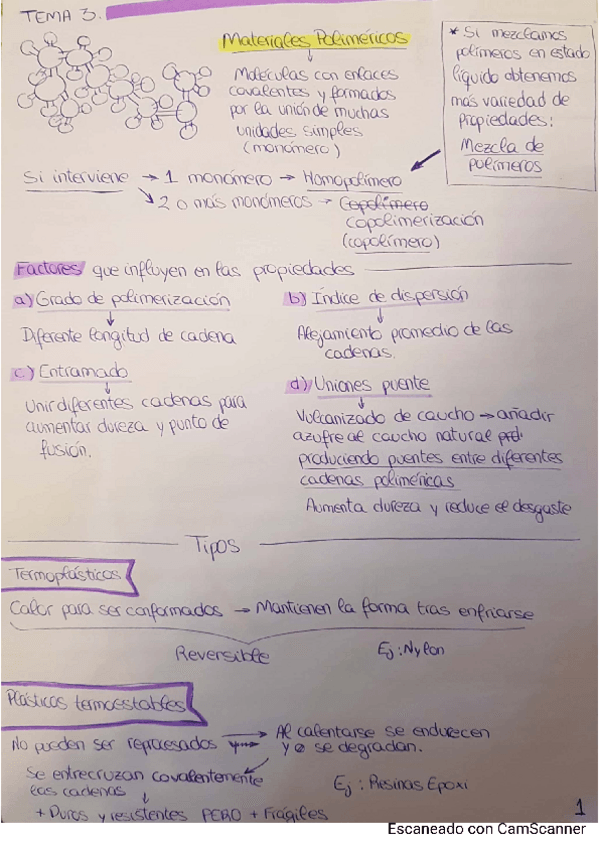 TEMA 3.
Materiales Poliméricos
Moléculas con enlaces
covalentes y formados
por la unión de muchas
unidades simples
(monómero)
* Si mezclamos
polímeros en estado
líquido obtenemos
más variedad de
propiedades:
Mezcla de
polímeros
Si interviene → 1 monómero → Homopolímero
↘ 2 o más monómeros → Copolímero
copolimerización
(copolímero)
Factores que influyen en las propiedades
a) Grado de polimerización
↓
Diferente longitud de cadena
b) Índice de dispersión
↓
Alejamiento promedio de las
cadenas.
c) Entramado
↓
Unir diferentes cadenas para
aumentar dureza y punto de
fusión.
d) Uniones puente
↓
Vulcanizado de caucho → añadir
azufre al caucho natural prd.
produciendo puentes entre diferentes
cadenas poliméricas
Aumenta dureza y reduce el desgaste
Tipos
Termoplásticos
Calor para ser conformados → Mantienen la forma tras enfriarse
Reversible
Ej: Nylon
Plásticos termoestables
No pueden ser reprocesados → Al calentarse se endurecen
y o se degradan.
Se entrecruzan covalentemente
las cadenas
↓
+ Duros y resistentes PERO + Frágiles
Ej: Resinas Epoxi
1
Escaneado con CamScanner